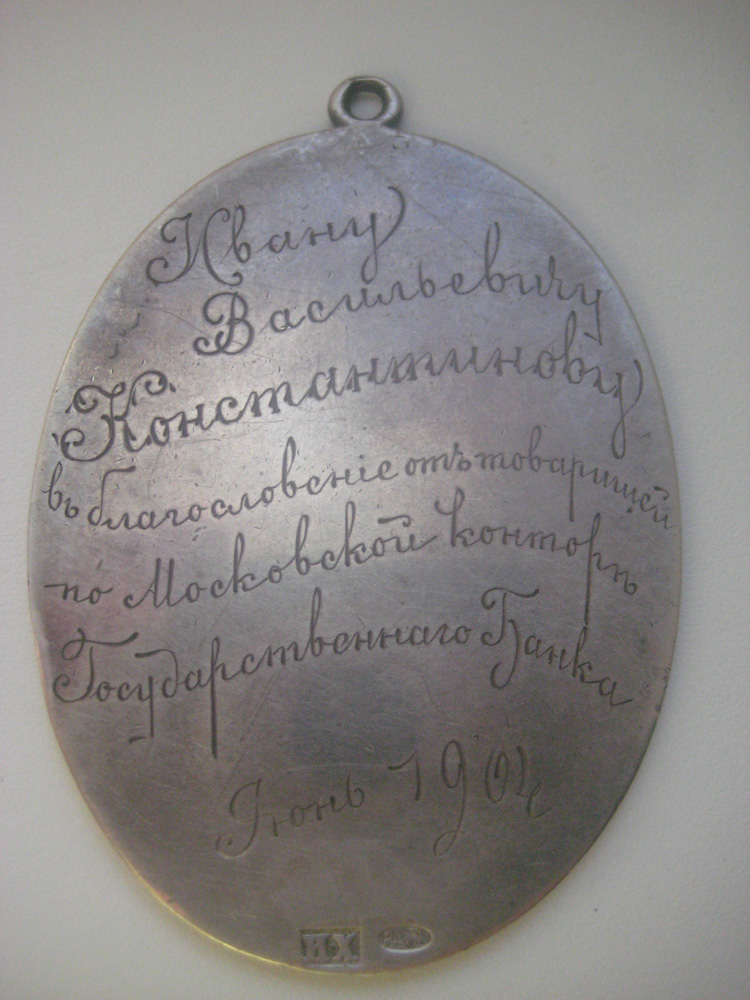 Ивану
Васильевичу
Константинову
въ благословенiе отъ товарищей
по Московской конторѣ
Государственнаго Банка
Iюнь 1904
ИХ